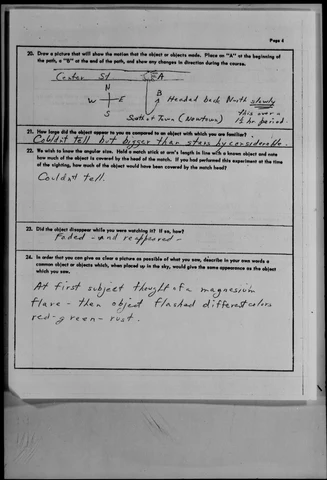 Page 4
20. Draw a picture that will show the motion that the object or objects made. Place an "A" at the beginning of
the path, a "B" at the end of the path, and show any changes in direction during the course.
Center St A
N
W E
S
B
Headed back North slowly
this over a
1½ hr. period.
South of Town (Newtown)
21. How large did the object appear to you as compared to an object with which you are familiar?
Couldn't tell but bigger than stars by considerable.
22. We wish to know the angular size. Hold a match stick at arm's length in line with a known object and note
how much of the object is covered by the head of the match. If you had performed this experiment at the time
of the sighting, how much of the object would have been covered by the match head?
Couldn't tell.
23. Did the object disappear while you were watching it? If so, how?
Faded - and reappeared -
24. In order that you can give as clear a picture as possible of what you saw, describe in your own words a
common object or objects which, when placed up in the sky, would give the same appearance as the object
which you saw.
At first subject thought of a magnesium
flare - then object flashed different colors
red-green-rust.